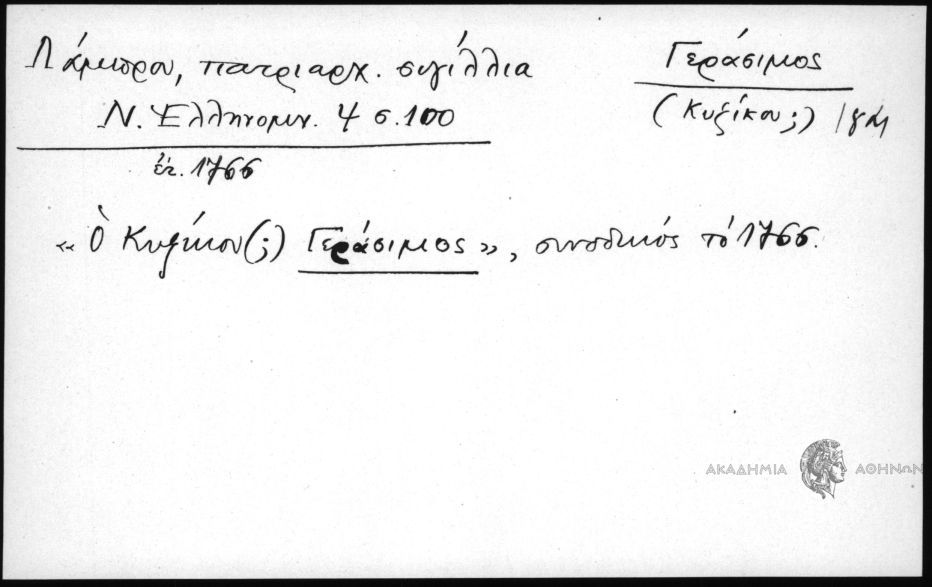 Λάμπρου, πατριαρχ. σιγίλλια
Ν. Ἑλληνομν. 4 σ. 100
ἔτ. 1766
Γεράσιμος
(Κυζίκου;)
« Ὁ Κυζίκου(;) Γεράσιμος », συνοδικός τό 1766.
ΑΚΑΔΗΜΙΑ ΑΘΗΝΩΝ